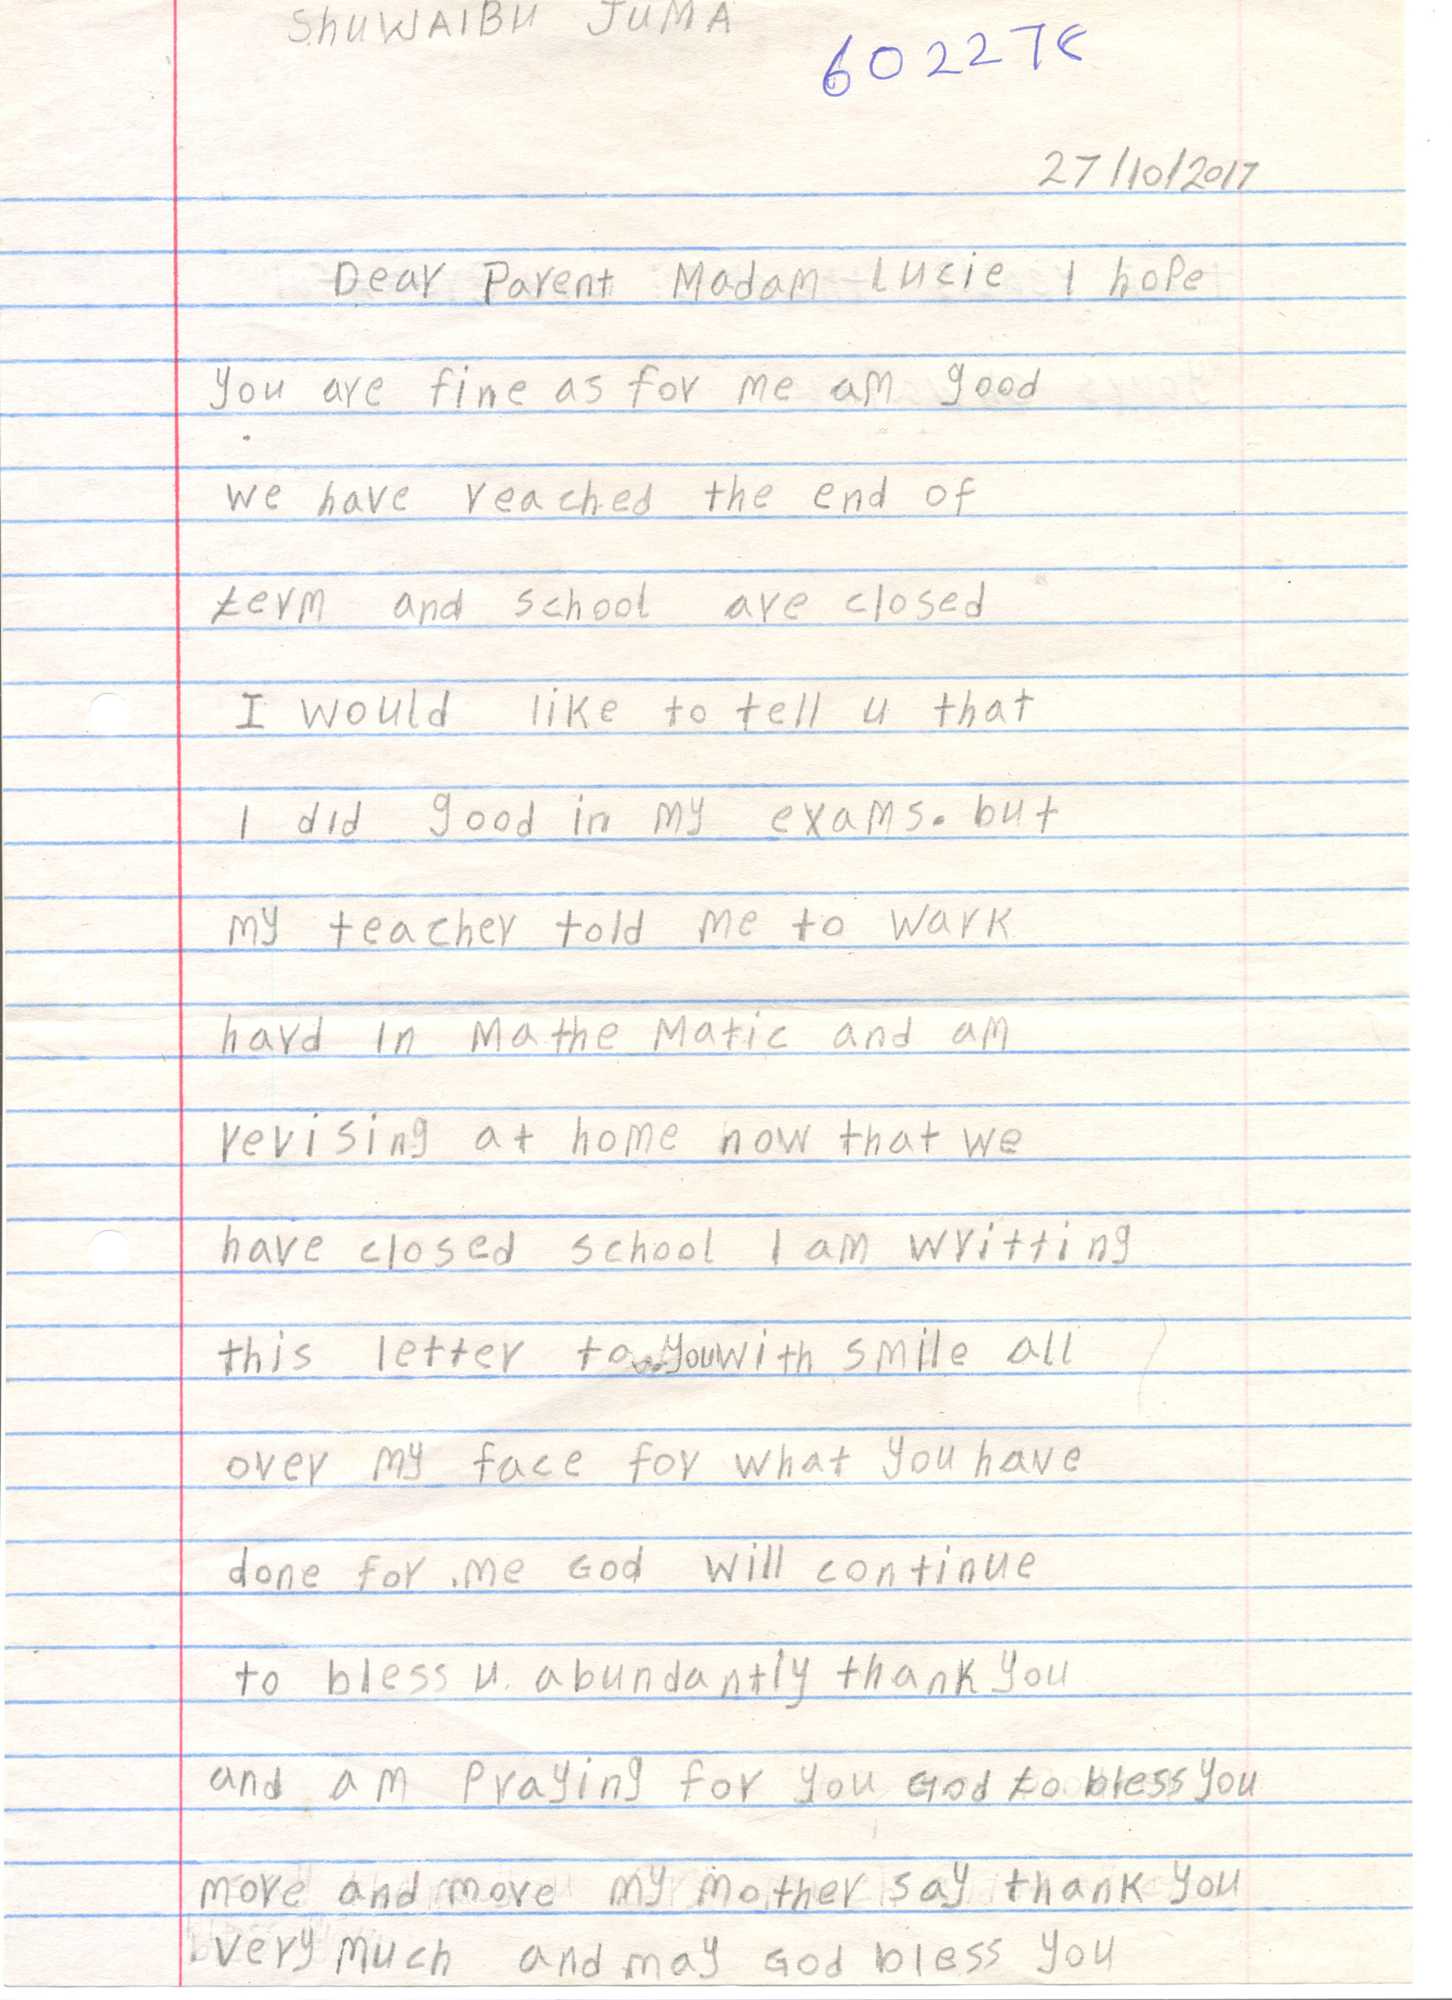 ShUWAIBU JUMA
60227
27/10/2017
Dear Parent Madam Lucie I hope
you are fine as for me am good
we have reached the end of
term and school are closed
I would like to tell u that
I did good in my exams. but
my teacher told me to wark
hard in Mathe Matic and am
revising at home now that we
have closed school I am writting
this letter to you with smile all
over my face for what you have
done for .me God will continue
to bless u. abundantly thank you
and am Praying for you God to bless you
more and more my mother say thank you
very much and may God bless you